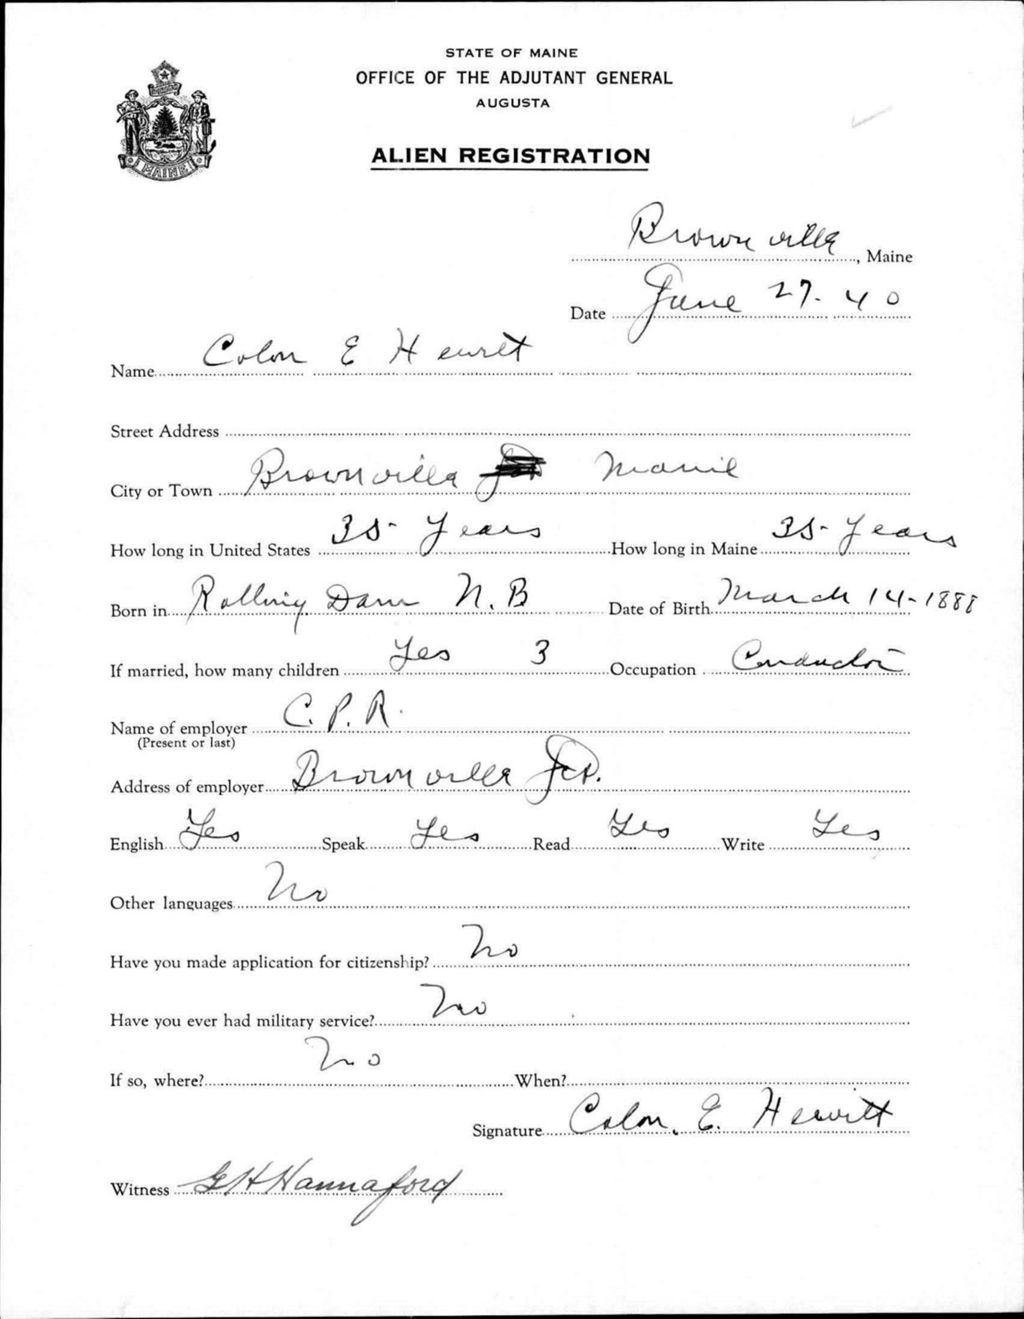 STATE OF MAINE
OFFICE OF THE ADJUTANT GENERAL
AUGUSTA
ALIEN REGISTRATION
MAINE
Brownville, Maine
Date June 27-40
Name Colon E Hewitt
Street Address
City or Town Brownville
How long in United States 35- Years How long in Maine 35- Years
Born in Rolling Dam N.B Date of Birth March 14-1888
If married, how many children Yes 3 Occupation Conductor
Name of employer C.P.R.
(Present or last)
Address of employer Brownville Jct.
English Yes Speak Yes Read Yes Write Yes
Other languages No
Have you made application for citizenship? No
Have you ever had military service? No
If so, where? No When?
Signature Colon. E. Hewitt
Witness G H Hannaford